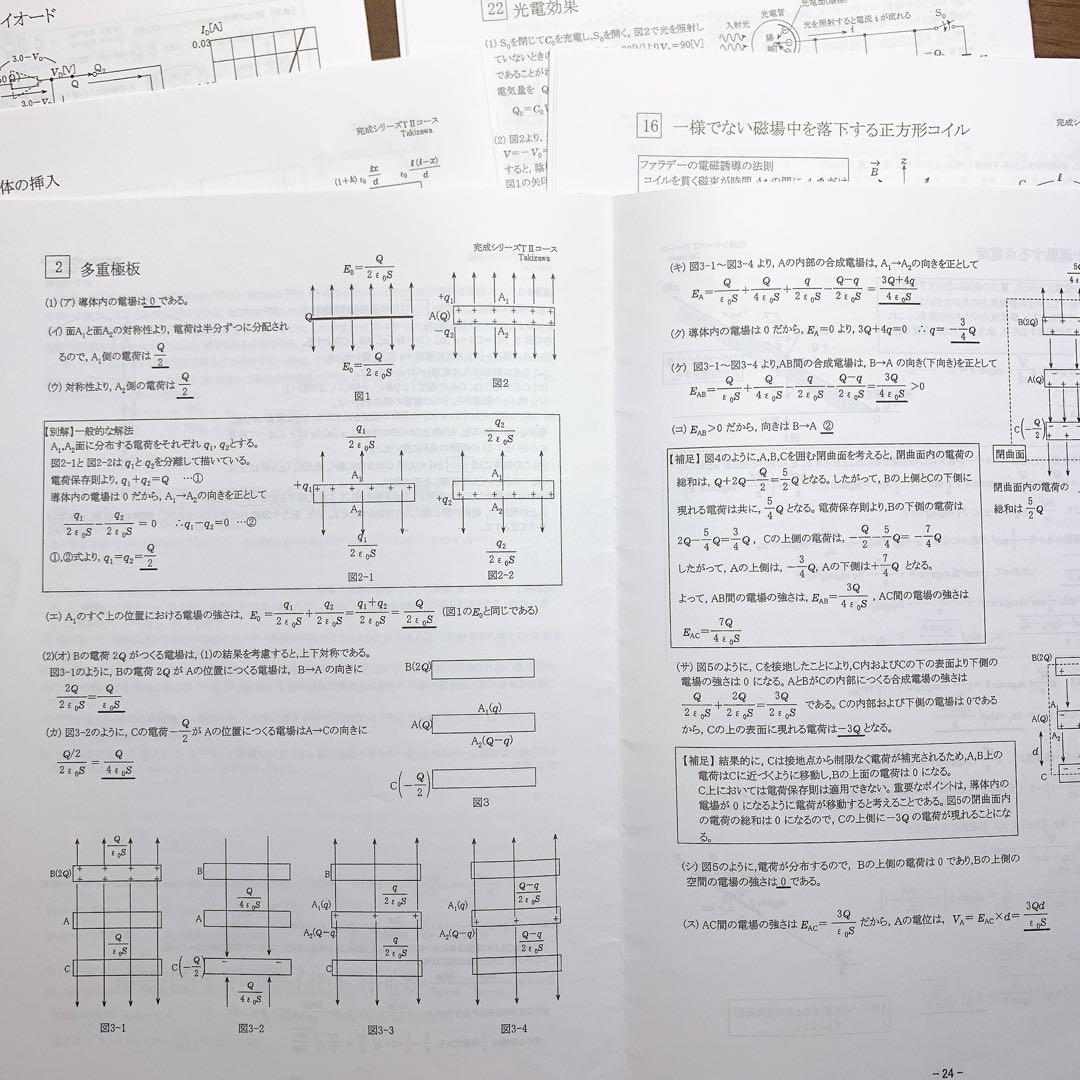 イオード
I_D[A]
0.03
3.0-V_D
V_D[V]
Q
3.0-V_D
22 光電効果
(1) S₀を閉じてC₀を充電し,S₀を開く。図2で光を照射し
ていないときの
であることが
電気量を Q
Q₀=C₀V
(2) 図2より,
V=-V₀=
すると, 陰
図1の矢印
入射光
光電管
光を照射すると電流 i が流れる
S₀
完成シリーズTⅡコース
Takizawa
体の挿入
16 一様でない磁場中を落下する正方形コイル
完成シ
ファラデーの電磁誘導の法則
B
z
ℓ
2 多重極板
完成シリーズTⅡコース
Takizawa
(1)(ア) 導体内の電場は 0 である。
(イ) 面A₁と面A₂の対称性より, 電荷は半分ずつに分配され
るので, A₁側の電荷は Q/2
(ウ) 対称性より, A₂側の電荷は Q/2
E₀=Q/2ε₀S
Q
E₀=Q/2ε₀S
図1
+q₁
A(Q)
-q₂
A₁
A₂
図2
【別解】一般的な解法
A₁,A₂面に分布する電荷をそれぞれ q₁, q₂とする。
図2-1と図2-2は q₁と q₂を分離して描いている。
電荷保存則より, q₁+q₂=Q …①
導体内の電場は 0 だから, A₁→A₂の向きを正として
q₁/2ε₀S-q₂/2ε₀S=0 ∴q₁-q₂=0 …②
①,②式より, q₁=q₂=Q/2
q₁/2ε₀S
+q₁
A₁
A₂
q₁/2ε₀S
図2-1
q₂/2ε₀S
A₁
+q₂
A₂
q₂/2ε₀S
図2-2
(エ) A₁のすぐ上の位置における電場の強さは, E₀=q₁/2ε₀S+q₂/2ε₀S=q₁+q₂/2ε₀S=Q/2ε₀S (図1のE₀と同じである)
(2)(オ) Bの電荷 2Q がつくる電場は, (1)の結果を考慮すると, 上下対称である。
図3-1のように, Bの電荷 2Q が A の位置につくる電場は, B→A の向きに
2Q/2ε₀S=Q/ε₀S
(カ) 図3-2のように, Cの電荷-Q/2が A の位置につくる電場はA→Cの向きに
Q/2/2ε₀S=Q/4ε₀S
B(2Q)
A₁(q)
A(Q)
A₂(Q-q)
C(-Q/2)
図3
Q/ε₀S
B(2Q)
A
Q/ε₀S
C
図3-1
B
Q/4ε₀S
A
C(-Q/2)
Q/4ε₀S
図3-2
B
q/2ε₀S
A₁(q)
A₂(Q-q)
q/2ε₀S
C
図3-3
Q-q/2ε₀S
A₁(q)
A₂(Q-q)
Q-q/2ε₀S
図3-4
(キ) 図3-1～図3-4 より, Aの内部の合成電場は, A₁→A₂の向きを正として
E_A=Q/ε₀S+Q/4ε₀S+q/2ε₀S-Q-q/2ε₀S=3Q+4q/4ε₀S
(ク) 導体内の電場は 0 だから, E_A=0 より, 3Q+4q=0 ∴ q=-3/4Q
(ケ) 図3-1～図3-4 より, AB間の合成電場は, B→A の向き(下向き)を正として
E_AB=Q/ε₀S+Q/4ε₀S-q/2ε₀S-Q-q/2ε₀S=3Q/4ε₀S>0
(コ) E_AB>0 だから, 向きは B→A ②
【補足】 図4のように,A,B,Cを囲む閉曲面を考えると, 閉曲面内の電荷の
総和は, Q+2Q-Q/2=5/2Q となる。したがって, Bの上側とCの下側に
現れる電荷は共に, 5/4Q となる。電荷保存則より,Bの下側の電荷は
2Q-5/4Q=3/4Q , Cの上側の電荷は, -Q/2-5/4Q=-7/4Q
したがって, Aの上側は, -3/4Q, Aの下側は+7/4Q となる。
よって, AB間の電場の強さは, E_AB=3Q/4ε₀S, AC間の電場の強さは
E_AC=7Q/4ε₀S
(サ) 図5のように, Cを接地したことにより,C内およびCの下の表面より下側の
電場の強さは 0 になる。AとBがCの内部につくる合成電場の強さは
Q/2ε₀S+2Q/2ε₀S=3Q/2ε₀S である。Cの内部および下側の電場は0である
から, Cの上の表面に現れる電荷は-3Qとなる。
【補足】 結果的に, Cは接地点から制限なく電荷が補充されるため,A,B上の
電荷はCに近づくように移動し,Bの上面の電荷は 0 になる。
C上においては電荷保存則は適用できない。重要なポイントは, 導体内の
電場が 0 になるように電荷が移動すると考えることである。図5の閉曲面内
の電荷の総和は 0 になるので, Cの上側に-3Q の電荷が現れることにな
る。
(シ) 図5のように, 電荷が分布するので, Bの上側の電荷は 0 であり,Bの上側の
空間の電場の強さは 0 である。
(ス) AC間の電場の強さは E_AC=3Q/ε₀S だから, Aの電位は, V_A=E_AC×d=3Qd/ε₀S
B(2Q)
A(Q)
C(-Q/2)
閉曲面
閉曲面内の電荷の
総和は 5/2Q
B(2Q)
A₁
A(Q)
A₂
d
C
-24-